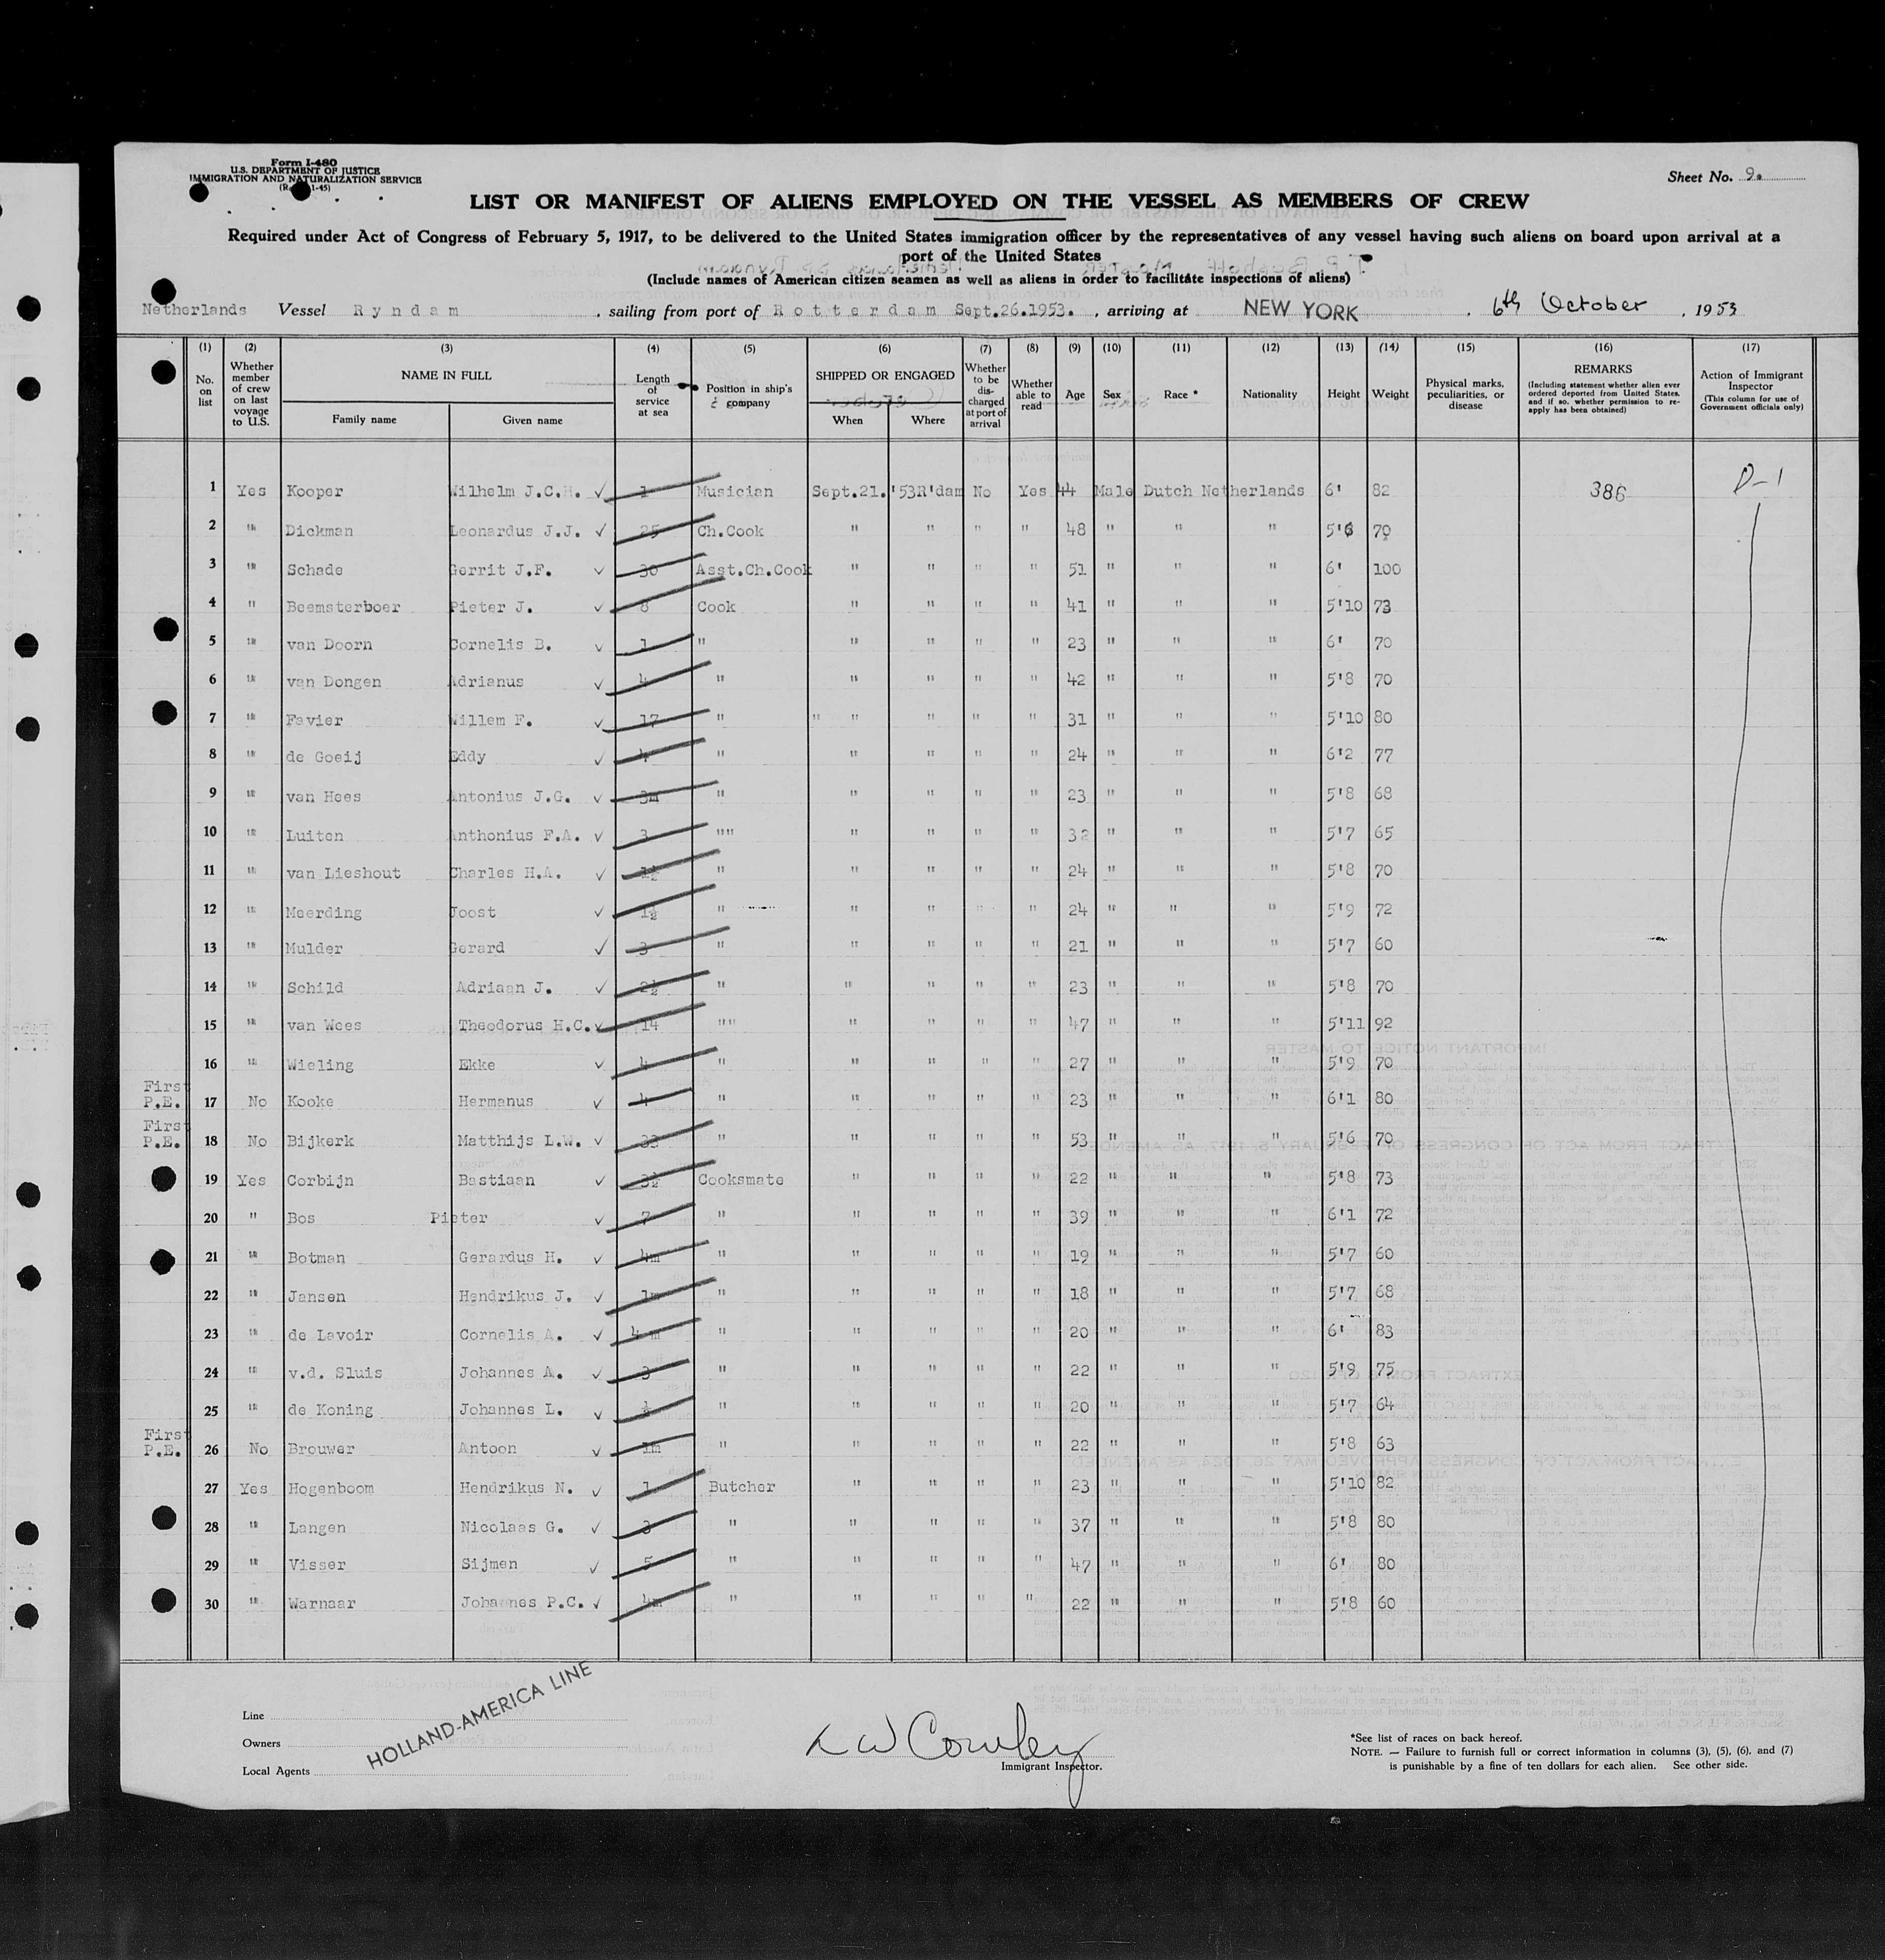 Form I-480
U.S. DEPARTMENT OF JUSTICE
IMMIGRATION AND NATURALIZATION SERVICE
Sheet No. 9.
LIST OR MANIFEST OF ALIENS EMPLOYED ON THE VESSEL AS MEMBERS OF CREW
Required under Act of Congress of February 5, 1917, to be delivered to the United States immigration officer by the representatives of any vessel having such aliens on board upon arrival at a
port of the United States
(Include names of American citizen seamen as well as aliens in order to facilitate inspections of aliens)
Netherlands Vessel Ryndam, sailing from port of Rotterdam Sept.26.1953., arriving at NEW YORK, 6th October, 1953
(1) (2) (3) (4) (5) (6) (7) (8) (9) (10) (11) (12) (13) (14) (15) (16) (17)
No. on list
Whether member of crew on last voyage to U.S.
NAME IN FULL
Family name Given name
Length of service at sea
Position in ship's company
SHIPPED OR ENGAGED
When Where
Whether to be discharged at port of arrival
Whether able to read
Age Sex Race * Nationality Height Weight
Physical marks, peculiarities, or disease
REMARKS
(Including statement whether alien ever ordered deported from United States, and if so, whether permission to reapply has been obtained)
Action of Immigrant Inspector
(This column for use of Government officials only)
1 Yes Kooper Wilhelm J.C.H. ✓ 1 Musician Sept.21.'53 R'dam No Yes 44 Male Dutch Netherlands 6' 82 386 D-1
2 " Dickman Leonardus J.J. ✓ 25 Ch.Cook " " " " 48 " " " 5'6 70
3 " Schade Gerrit J.F. ✓ 30 Asst.Ch.Cook " " " " 51 " " " 6' 100
4 " Beemsterboer Pieter J. ✓ 8 Cook " " " " 41 " " " 5'10 73
5 " van Doorn Cornelis B. ✓ 1 " " " " " 23 " " " 6' 70
6 " van Dongen Adrianus ✓ 4 " " " " " 42 " " " 5'8 70
7 " Favier Willem F. ✓ 17 " " " " " " 31 " " " 5'10 80
8 " de Goeij Eddy ✓ 4 " " " " " 24 " " " 6'2 77
9 " van Hees Antonius J.G. ✓ 3m " " " " " 23 " " " 5'8 68
10 " Luiten Anthonius F.A. ✓ 3 "" " " " " 32 " " " 5'7 65
11 " van Lieshout Charles H.A. ✓ 1½ " " " " " 24 " " " 5'8 70
12 " Meerding Joost ✓ 1½ " " " " " 24 " " " 5'9 72
13 " Mulder Gerard ✓ 3 " " " " " 21 " " " 5'7 60
14 " Schild Adriaan J. ✓ 2½ " " " " " 23 " " " 5'8 70
15 " van Wees Theodorus H.C. ✓ 14 "" " " " " 47 " " " 5'11 92
16 " Wieling Ekke ✓ 4 " " " " " 27 " " " 5'9 70
First P.E. 17 No Kooke Hermanus ✓ 4 " " " " " 23 " " " 6'1 80
First P.E. 18 No Bijkerk Matthijs L.W. ✓ 33 " " " " " 53 " " " 5'6 70
19 Yes Corbijn Bastiaan ✓ 3½ Cooksmate " " " " 22 " " " 5'8 73
20 " Bos Pieter ✓ 7 " " " " " 39 " " " 6'1 72
21 " Botman Gerardus H. ✓ 4m " " " " " 19 " " " 5'7 60
22 " Jansen Hendrikus J. ✓ 1m " " " " " 18 " " " 5'7 68
23 " de Lavoir Cornelis A. ✓ 4 m " " " " " 20 " " " 6' 83
24 " v.d. Sluis Johannes A. ✓ 3 " " " " " 22 " " " 5'9 75
25 " de Koning Johannes L. ✓ ½ " " " " " 20 " " " 5'7 64
First P.E. 26 No Brouwer Antoon ✓ 1m " " " " " 22 " " " 5'8 63
27 Yes Hogenboom Hendrikus N. ✓ 1 Butcher " " " " 23 " " " 5'10 82
28 " Langen Nicolaas G. ✓ 3 " " " " " 37 " " " 5'8 80
29 " Visser Sijmen ✓ 5 " " " " " 47 " " " 6' 80
30 " Warnaar Johannes P.C. ✓ 4m " " " " " 22 " " " 5'8 60
Line
Owners
Local Agents
HOLLAND-AMERICA LINE
Immigrant Inspector.
*See list of races on back hereof.
NOTE. — Failure to furnish full or correct information in columns (3), (5), (6), and (7)
is punishable by a fine of ten dollars for each alien. See other side.